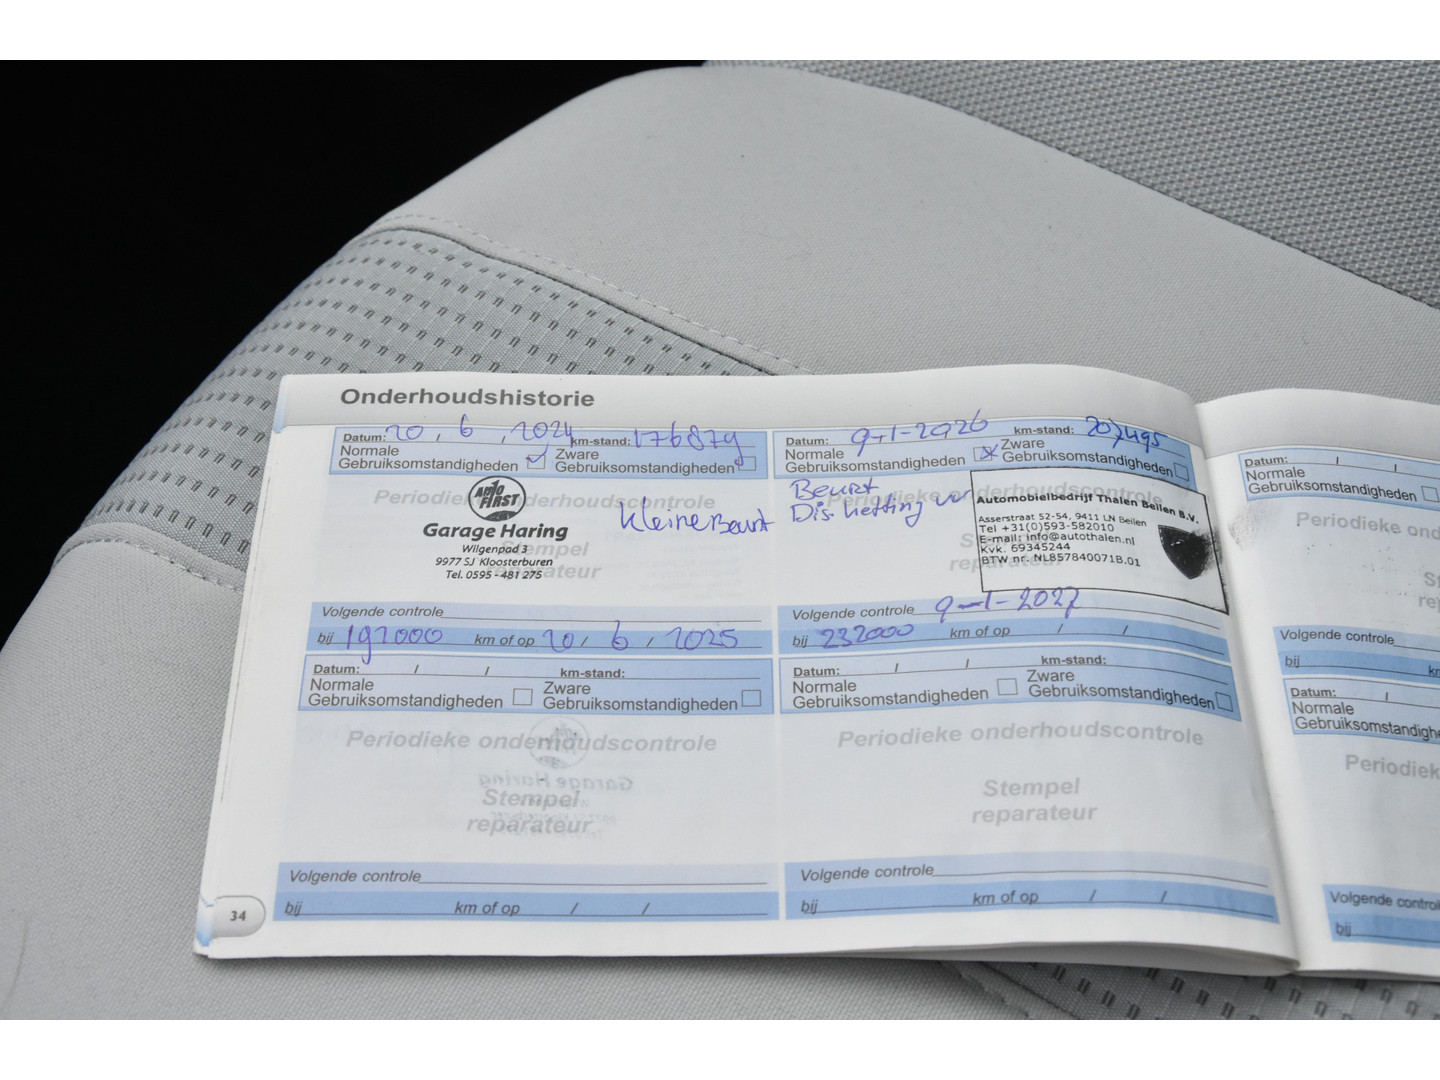 Onderhoudshistorie
Datum: 20 , 6 , 2024 km-stand: 176879
Normale
Gebruiksomstandigheden
Zware
Gebruiksomstandigheden
Periodieke onderhoudscontrole
AUTO FIRST
Garage Haring
Wilgenpad 3
9977 SJ Kloosterburen
Tel. 0595 - 481 275
Kleine Beurt
Stempel
reparateur
Volgende controle
bij 192000 km of op 20 / 6 / 2025
Datum: 9-1-2026 km-stand: 207495
Normale
Gebruiksomstandigheden
Zware
Gebruiksomstandigheden
Periodieke onderhoudscontrole
Beurt
Dis. ketting
Automobielbedrijf Thalen Beilen B.V.
Asserstraat 52-54, 9411 LN Beilen
Tel +31(0)593-582010
E-mail: info@autothalen.nl
Kvk. 69345244
BTW nr. NL857840071B.01
Volgende controle 9-1-2027
bij 232000 km of op / /
Datum: / / km-stand:
Normale
Gebruiksomstandigheden
Zware
Gebruiksomstandigheden
Periodieke onderhoudscontrole
Garage Haring
Stempel
reparateur
Volgende controle
bij km of op / /
Datum: / / km-stand:
Normale
Gebruiksomstandigheden
Zware
Gebruiksomstandigheden
Periodieke onderhoudscontrole
Stempel
reparateur
Volgende controle
bij km of op / /
34
Datum: / /
Normale
Gebruiksomstandigheden
Periodieke ond
Volgende controle
bij
Datum: /
Normale
Gebruiksomstandigh
Periodiek
Volgende contro
bij